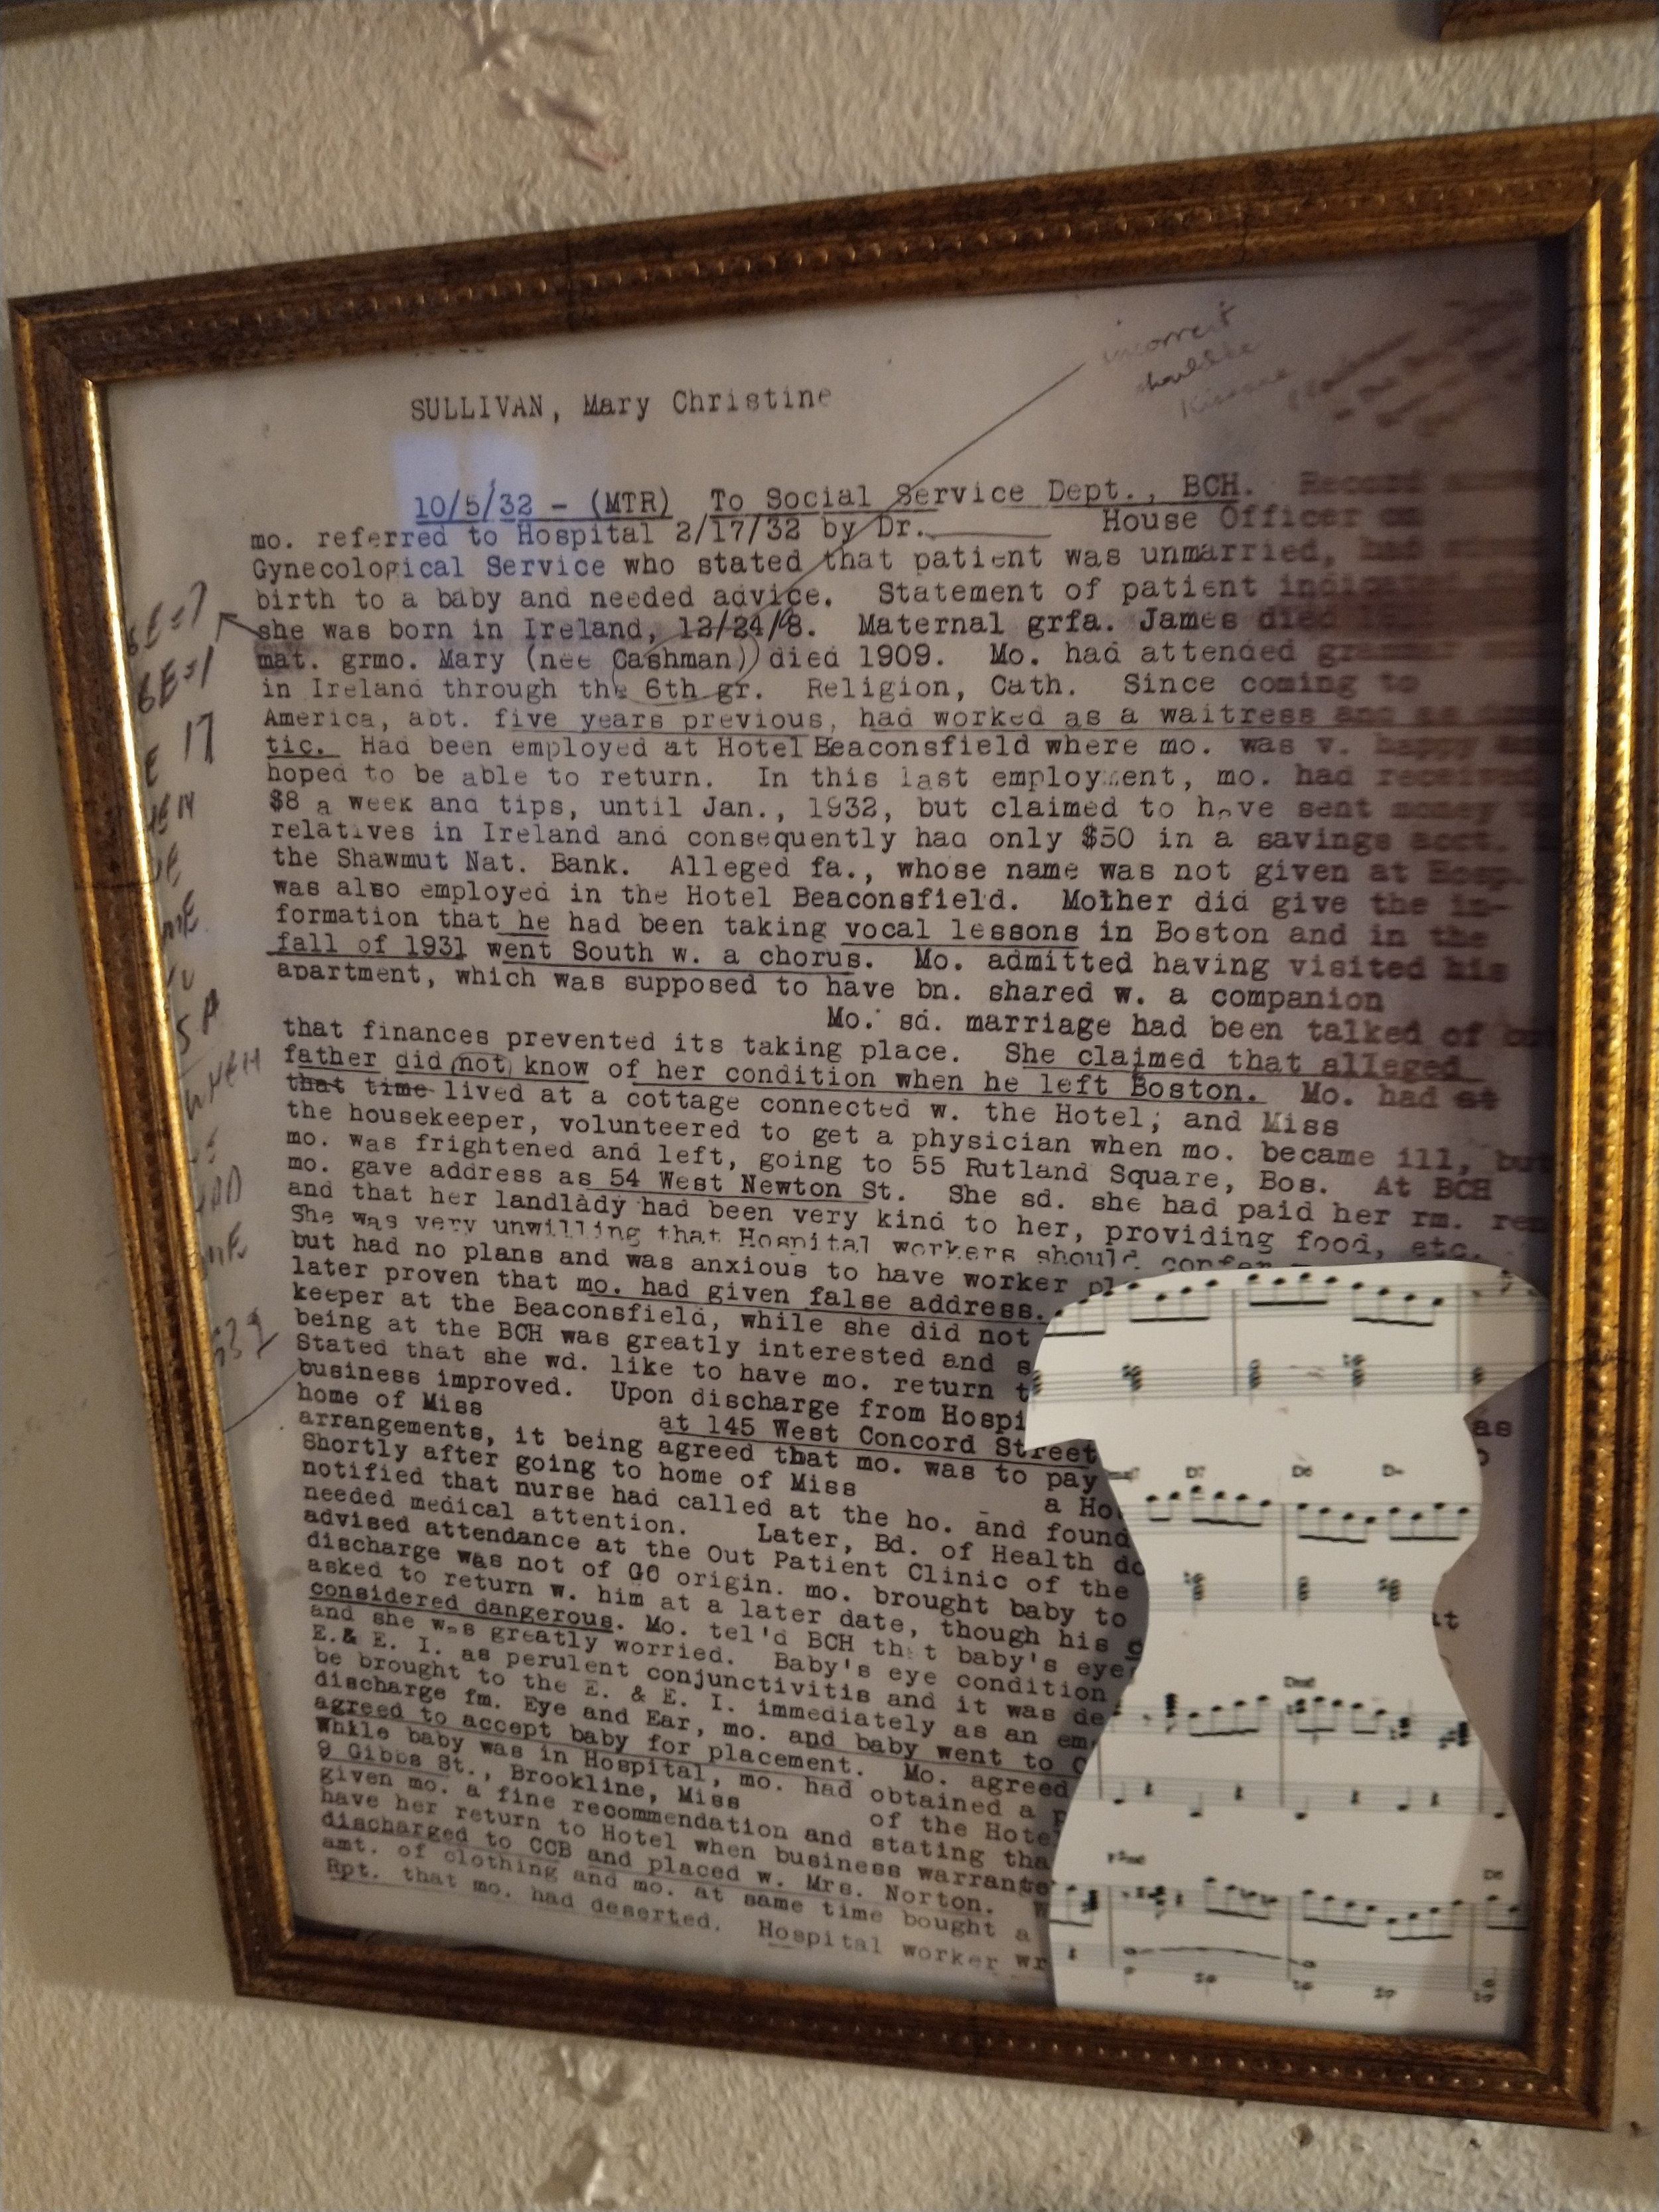 incorrect
should be
SULLIVAN, Mary Christine
10/5/32 - (MTR) To Social Service Dept., BCH. Record
mo. referred to Hospital 2/17/32 by Dr. House Officer on
Gynecological Service who stated that patient was unmarried, had
birth to a baby and needed advice. Statement of patient indicated
she was born in Ireland, 12/24/ 8. Maternal grfa. James died
mat. grmo. Mary (nee Cashman) died 1909. Mo. had attended grammar
in Ireland through the 6th gr. Religion, Cath. Since coming to
America, abt. five years previous, had worked as a waitress and as
tic. Had been employed at Hotel Beaconsfield where mo. was v. happy
hoped to be able to return. In this last employment, mo. had received
$8 a week and tips, until Jan., 1932, but claimed to have sent money
relatives in Ireland and consequently had only $50 in a savings acct.
the Shawmut Nat. Bank. Alleged fa., whose name was not given at Hosp.
was also employed in the Hotel Beaconsfield. Mother did give the in-
formation that he had been taking vocal lessons in Boston and in the
fall of 1931 went South w. a chorus. Mo. admitted having visited his
apartment, which was supposed to have bn. shared w. a companion
Mo. sd. marriage had been talked of
that finances prevented its taking place. She claimed that alleged
father did not know of her condition when he left Boston. Mo. had at
that time lived at a cottage connected w. the Hotel; and Miss
the housekeeper, volunteered to get a physician when mo. became ill, but
mo. was frightened and left, going to 55 Rutland Square, Bos. At BCH
mo. gave address as 54 West Newton St. She sd. she had paid her rm.
and that her landlady had been very kind to her, providing food, etc.
She was very unwilling that Hospital workers should confer
but had no plans and was anxious to have worker pl
later proven that mo. had given false address.
keeper at the Beaconsfield, while she did not
being at the BCH was greatly interested and s
Stated that she wd. like to have mo. return t
business improved. Upon discharge from Hospi
home of Miss at 145 West Concord Street as
arrangements, it being agreed that mo. was to pay
Shortly after going to home of Miss a Ho
notified that nurse had called at the ho. and found
needed medical attention. Later, Bd. of Health do
advised attendance at the Out Patient Clinic of the
discharge was not of GC origin. mo. brought baby to
asked to return w. him at a later date, though his
considered dangerous. Mo. tel'd BCH that baby's eye
and she was greatly worried. Baby's eye condition
E.& E. I. as perulent conjunctivitis and it was de
be brought to the E. & E. I. immediately as an em
discharge fm. Eye and Ear, mo. and baby went to C
agreed to accept baby for placement. Mo. agreed
While baby was in Hospital, mo. had obtained a p
9 Gibbs St., Brookline, Miss of the Hote
given mo. a fine recommendation and stating tha
have her return to Hotel when business warrante
discharged to CCB and placed w. Mrs. Norton. W
amt. of clothing and mo. at same time bought a
Rpt. that mo. had deserted. Hospital worker wr
D7 D6